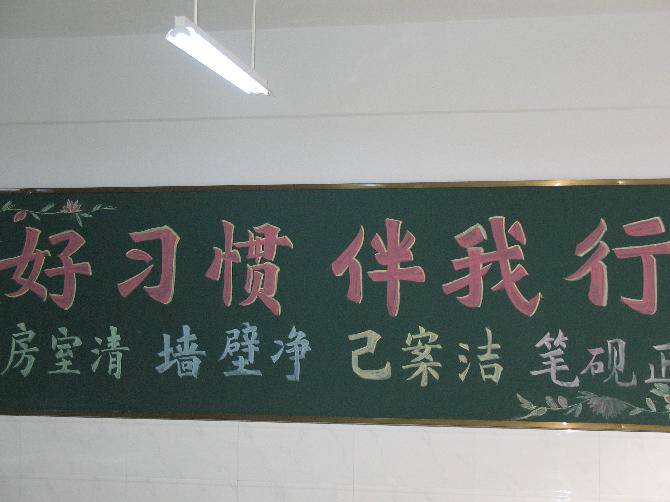 好习惯伴我行
房室清 墙壁净 己案洁 笔砚正